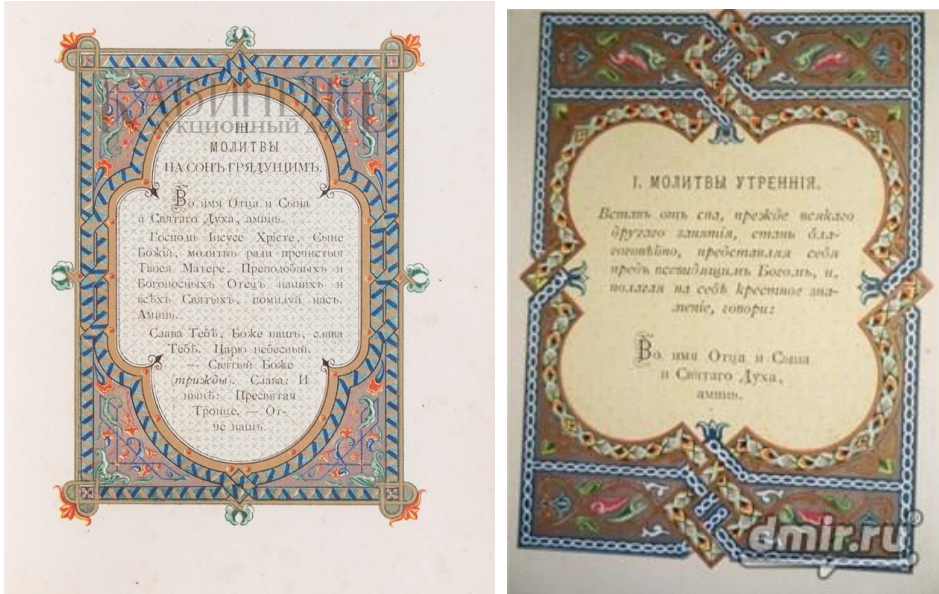 III.
МОЛИТВЫ
НА СОНЪ ГРЯДУЩИМЪ.
Во имя Отца и Сына
и Святаго Духа, аминь.
Господи Іисусе Хрiсте, Сыне
Божій, молитвъ ради пречистыя
Твоея Матере, Преподобныхъ и
Богоносныхъ Отецъ нашихъ и
всѣхъ Святыхъ, помилуй насъ.
Аминь.
Слава Тебѣ, Боже нашъ, слава
Тебѣ. Царю небесный.
— Святый Боже
трижды. Слава: И
нынѣ: Пресвятая
Троице, — От-
че нашъ.
I. МОЛИТВЫ УТРЕННІЯ.
Вставъ отъ сна, прежде всякаго
другаго занятія, стань бла-
гоговѣйно, представляя себя
предъ всевидящимъ Богомъ, и,
полагая на себѣ крестное зна-
меніе, говори:
Во имя Отца и Сына
и Святаго Духа,
аминь.
dmir.ru